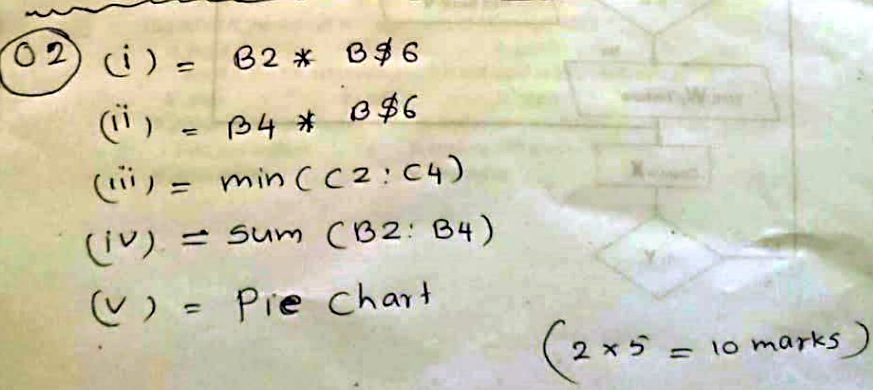 02 (i) = B2 * B$6
(ii) = B4 * B$6
(iii) = min (C2:C4)
(iv) = sum (B2:B4)
(v) = Pie chart
(2 x 5 = 10 marks)